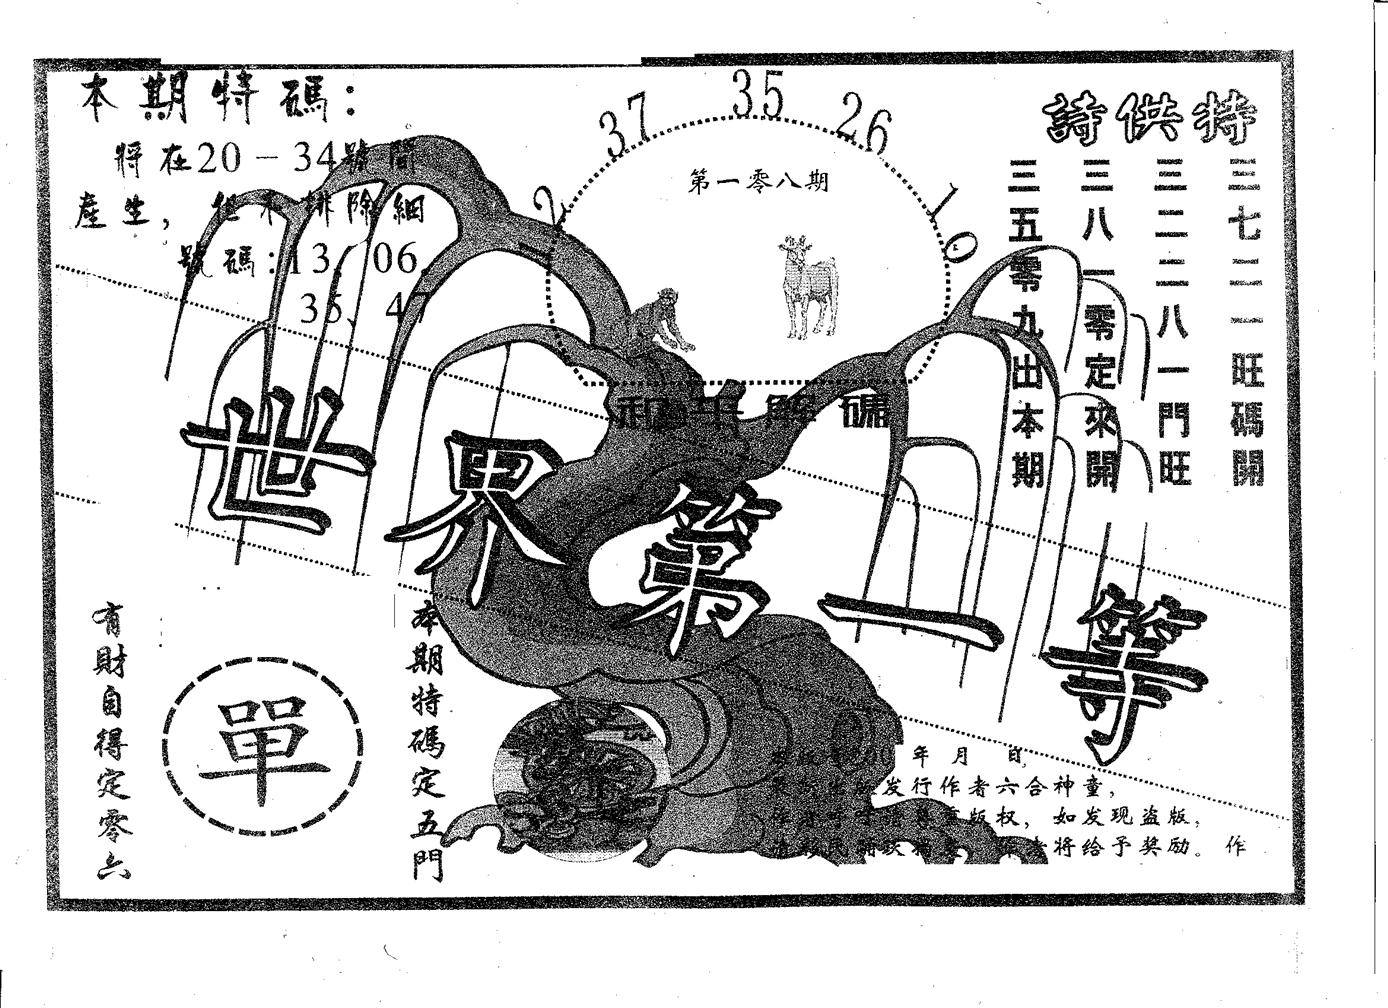 本期特碼：
將在20－34號間
產生，但不排除細
號碼：13、06、
35、47
2
37
35
26
10
第一零八期
解碼
特供詩
三七二一旺碼開
三二二八一門旺
三八一零定來開
三五零九出本期
世界第一等
有財自得定零六
單
本期特碼定五門
年 月 日
发行作者六合神童，
版权，如发现盗版，
将给予奖励。作